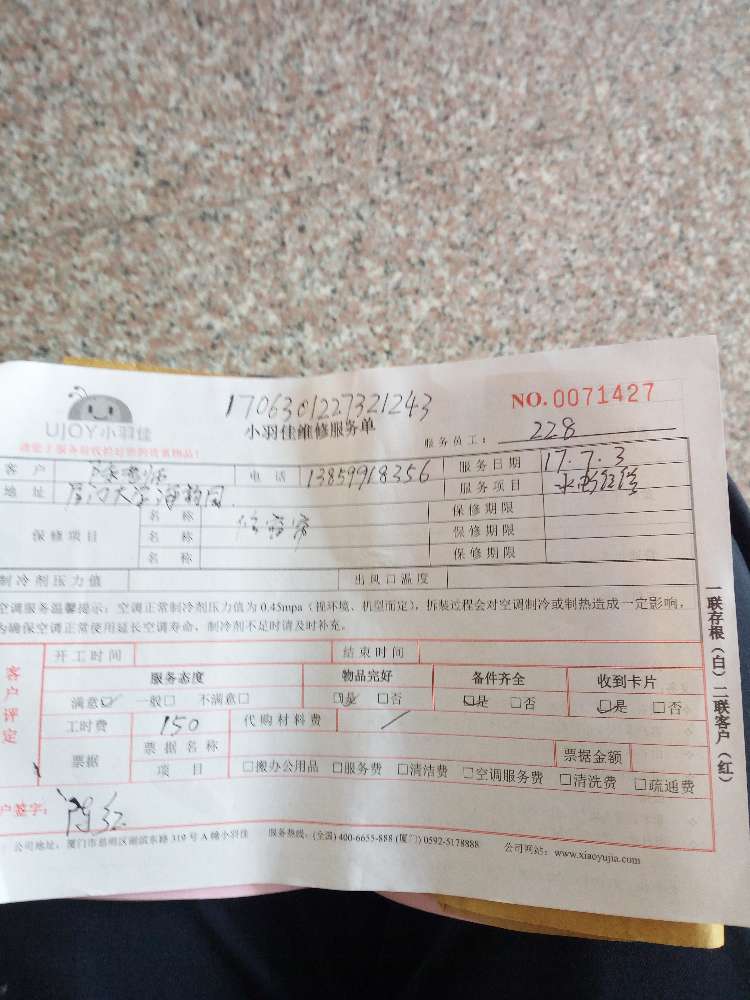 1706301227321243
NO. 0071427
UJOY小羽佳
小羽佳维修服务单
服务员工： 228
客户 电话 13859918356 服务日期 17.7.3
地址 厦门大学海韵园 服务项目
保修项目 名称 保修期限
名称 保修期限
名称 保修期限
制冷剂压力值 出风口温度
空调服务温馨提示：空调正常制冷剂压力值为0.45mpa（视环境、机型而定），拆装过程会对空调制冷或制热造成一定影响，
为确保空调正常使用延长空调寿命，制冷剂不足时请及时补充。
客户评定
开工时间 结束时间
服务态度 物品完好 备件齐全 收到卡片
满意☑ 一般□ 不满意□ ☑是 □否 ☑是 □否 ☑是 □否
工时费 150 代购材料费 /
票据 票据名称 票据金额
项目 □搬办公用品 □服务费 □清洁费 □空调服务费 □清洗费 □疏通费
户签字：
公司地址：厦门市思明区湖滨东路319号A幢小羽佳 服务热线：(全国) 400-6655-888 (厦门) 0592-5178888 公司网站：www.xiaoyujia.com
一联存根（白）二联客户（红）